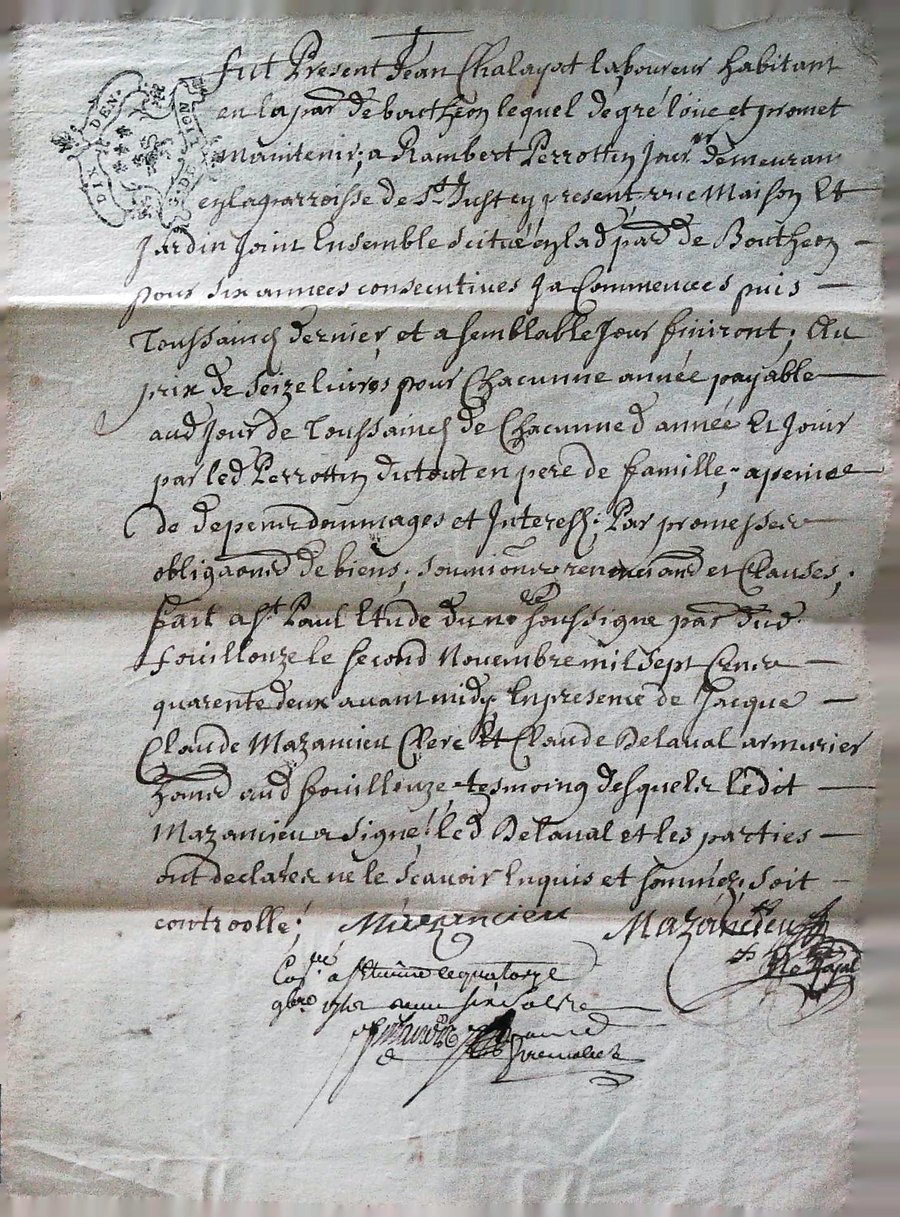 fut Present Jean Chalayat laboureur habitant
en la par de boutheon lequel de gré loüe et promet
maintenir, a Rambert Perrottin Jour.er demeuran
en la parroisse de St Just ey present, une Maison Et
DIX DEN.
Jardin Joint Ensemble scitué en lad par de Boutheon
pour six années consecutives Ja Commencées puis
Toussainct dernier, et a semblable Jour finiront; Au
prix de seize livres pour Chacunne année payable
aud Jour de Toussainct de Chacunned année Et Jouir
par led Perrottin du tout en pere de famille; a peine
de depens dommages et Interest; Par promesses
obligaons de biens; soumions renonciaons et Clauses;
fait a St Paul Etude du no re soussigne par dud
fouillouze le second Novembre mil sept Cents
quarente deux avant midy En presence de Jacque
Claude Mazancieu Clerc Et Claude Delaval armurier
aud fouillouze tesmoing desquels ledit
Mazancieu a signé; led Delaval et les parties
ont declarés ne le scavoir Enquis et sommés; soit
controollé! Mazancieu Mazancieu
No Royal
a St le quatorze
9bre 1742